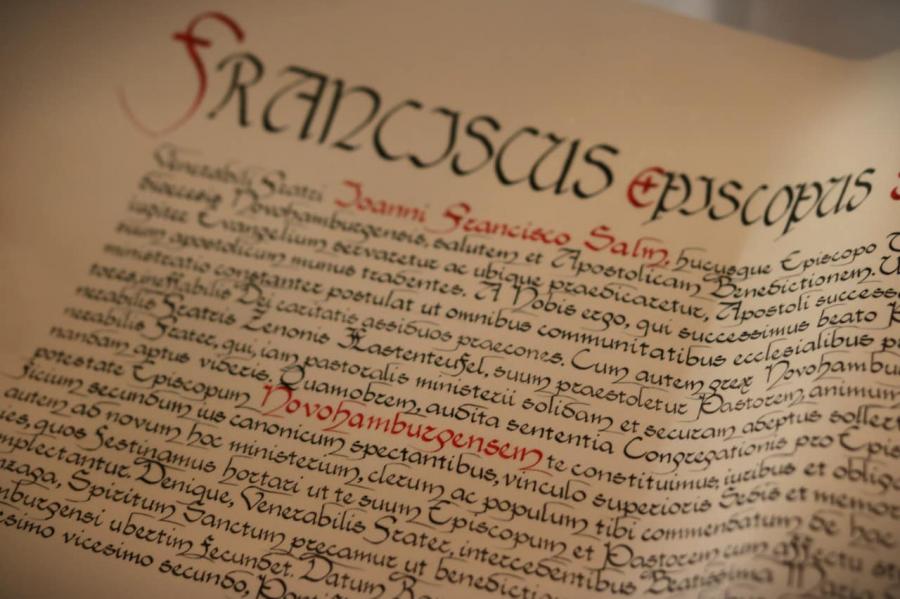 FRANCISCUS EPISCOPUS
Venerabili Fratri Ioanni Francisco Salm, hucusque Episcopo
dioecesis Novohamburgensis, salutem et Apostolicam Benedictionem.
iugiter Evangelium servaretur ac ubique praedicaretur, Apostoli success
suum apostolicum munus tradentes. A Nobis ergo, qui successimus beato
ministratio constanter postulat ut omnibus communitatibus ecclesialibus
ineffabilis Dei caritatis assiduos praecones. Cum autem grex Novohambu
nerabilis Fratris Zenonis Hastenteufel, suum praestoletur Pastorem, animum
nerabilis Frater, qui, iam pastoralis ministerii solidam et securam adeptus sollert
nandam aptus videris. Quamobrem, audita sententia Congregationis pro Epis
potestate Episcopum Novohamburgensem te constituimus, iuribus et oblig
ficium secundum ius canonicum spectantibus, vinculo superioris Sedis et memor
autem ad novum hoc ministerium, clerum ac populum tibi commendatum de hac
ues, quos festinamus hortari ut te suum Episcopum et Pastorem cum affectu
mplectantur. Denique, Venerabilis Frater, intercedentibus Beatissima Maria
nzaga, Spiritum Sanctum precamur ut benedictio
mburgensi ubertim fecundet. Datum
esimo vicesimo secundo,